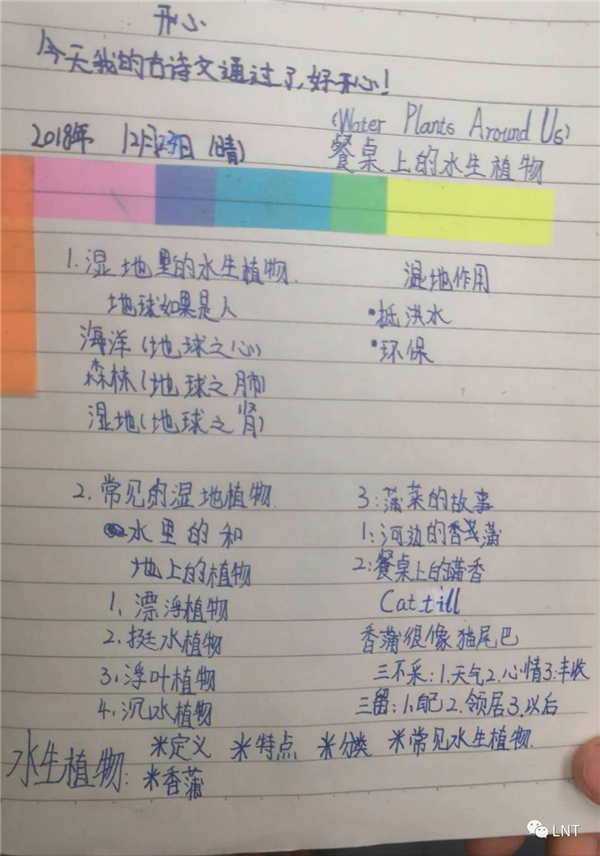 开心
今天我的古诗文通过了,好开心!
2018年 12月23日 (晴)
(Water Plants Around Us)
餐桌上的水生植物
1.湿地里的水生植物.
地球如果是人
海洋(地球之心)
森林(地球之肺)
湿地(地球之肾)
湿地作用
•抵洪水
•环保
2.常见的湿地植物.
水里的和
地上的植物
1、漂浮植物
2.挺水植物
3.浮叶植物
4.沉水植物
3:蒲菜的故事
1:河边的香蒲
2:餐桌上的蒲香
Cattill
香蒲很像猫尾巴
三不采:1.天气2.心情3.丰收
三留:1.自己2.领居3.以后
水生植物: *定义 *特点 *分类 *常见水生植物.
*香蒲
LNT